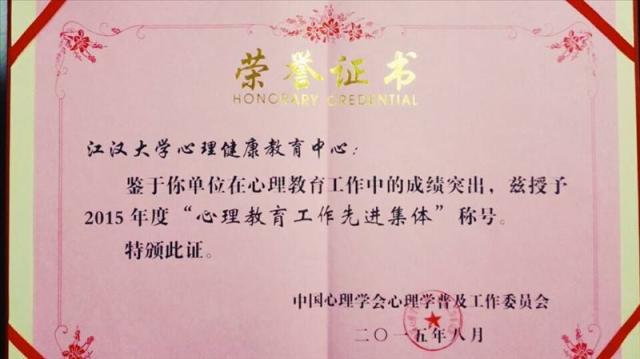 荣誉证书
HONORARY CREDENTIAL
江汉大学心理健康教育中心：
鉴于你单位在心理教育工作中的成绩突出，兹授予
2015年度“心理教育工作先进集体”称号。
特颁此证。
中国心理学会心理学普及工作委员会
二〇一五年八月